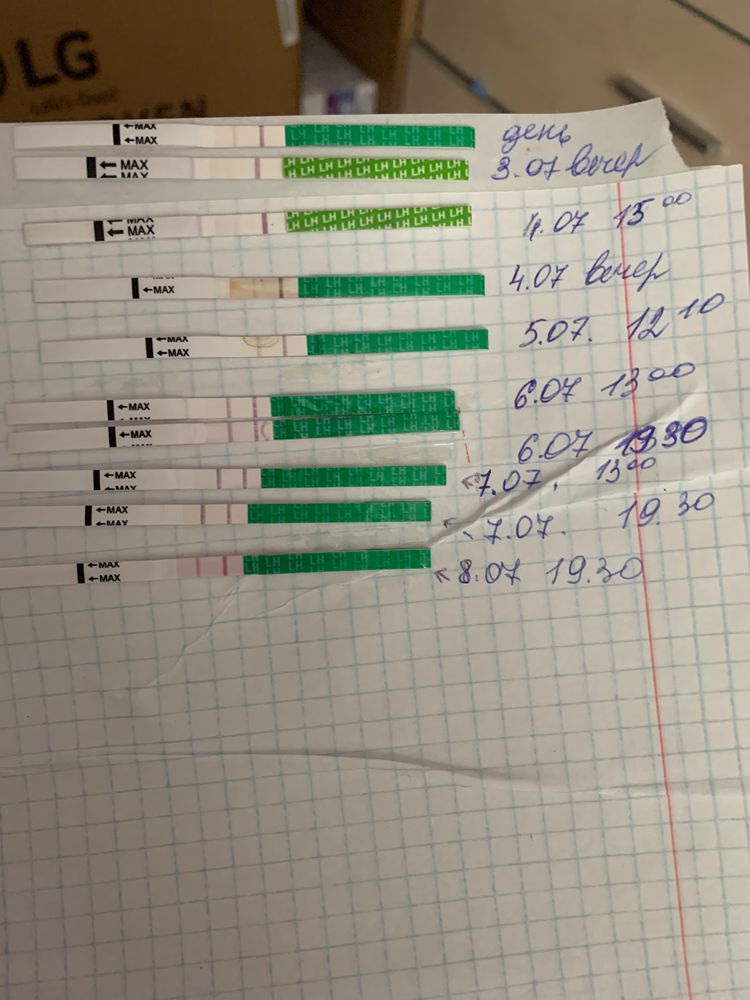 LG
Life's Good
MAX
MAX
LH LH LH LH LH LH LH
день
MAX
MAX
LH LH LH LH LH LH LH
3.07 вечер
MAX
MAX
LH LH LH LH LH LH LH
4.07 15 00
MAX
LH LH LH LH LH LH LH
4.07 вечер
MAX
MAX
LH LH LH LH LH LH LH
5.07. 12 10
MAX
LH LH LH LH LH LH LH
6.07 13 00
MAX
LH LH LH LH LH LH LH
6.07 19 30
MAX
MAX
LH LH LH LH LH LH LH
7.07. 13 00
MAX
MAX
LH LH LH LH LH LH LH
7.07. 19.30
MAX
MAX
LH LH LH LH LH LH LH
8.07 19.30